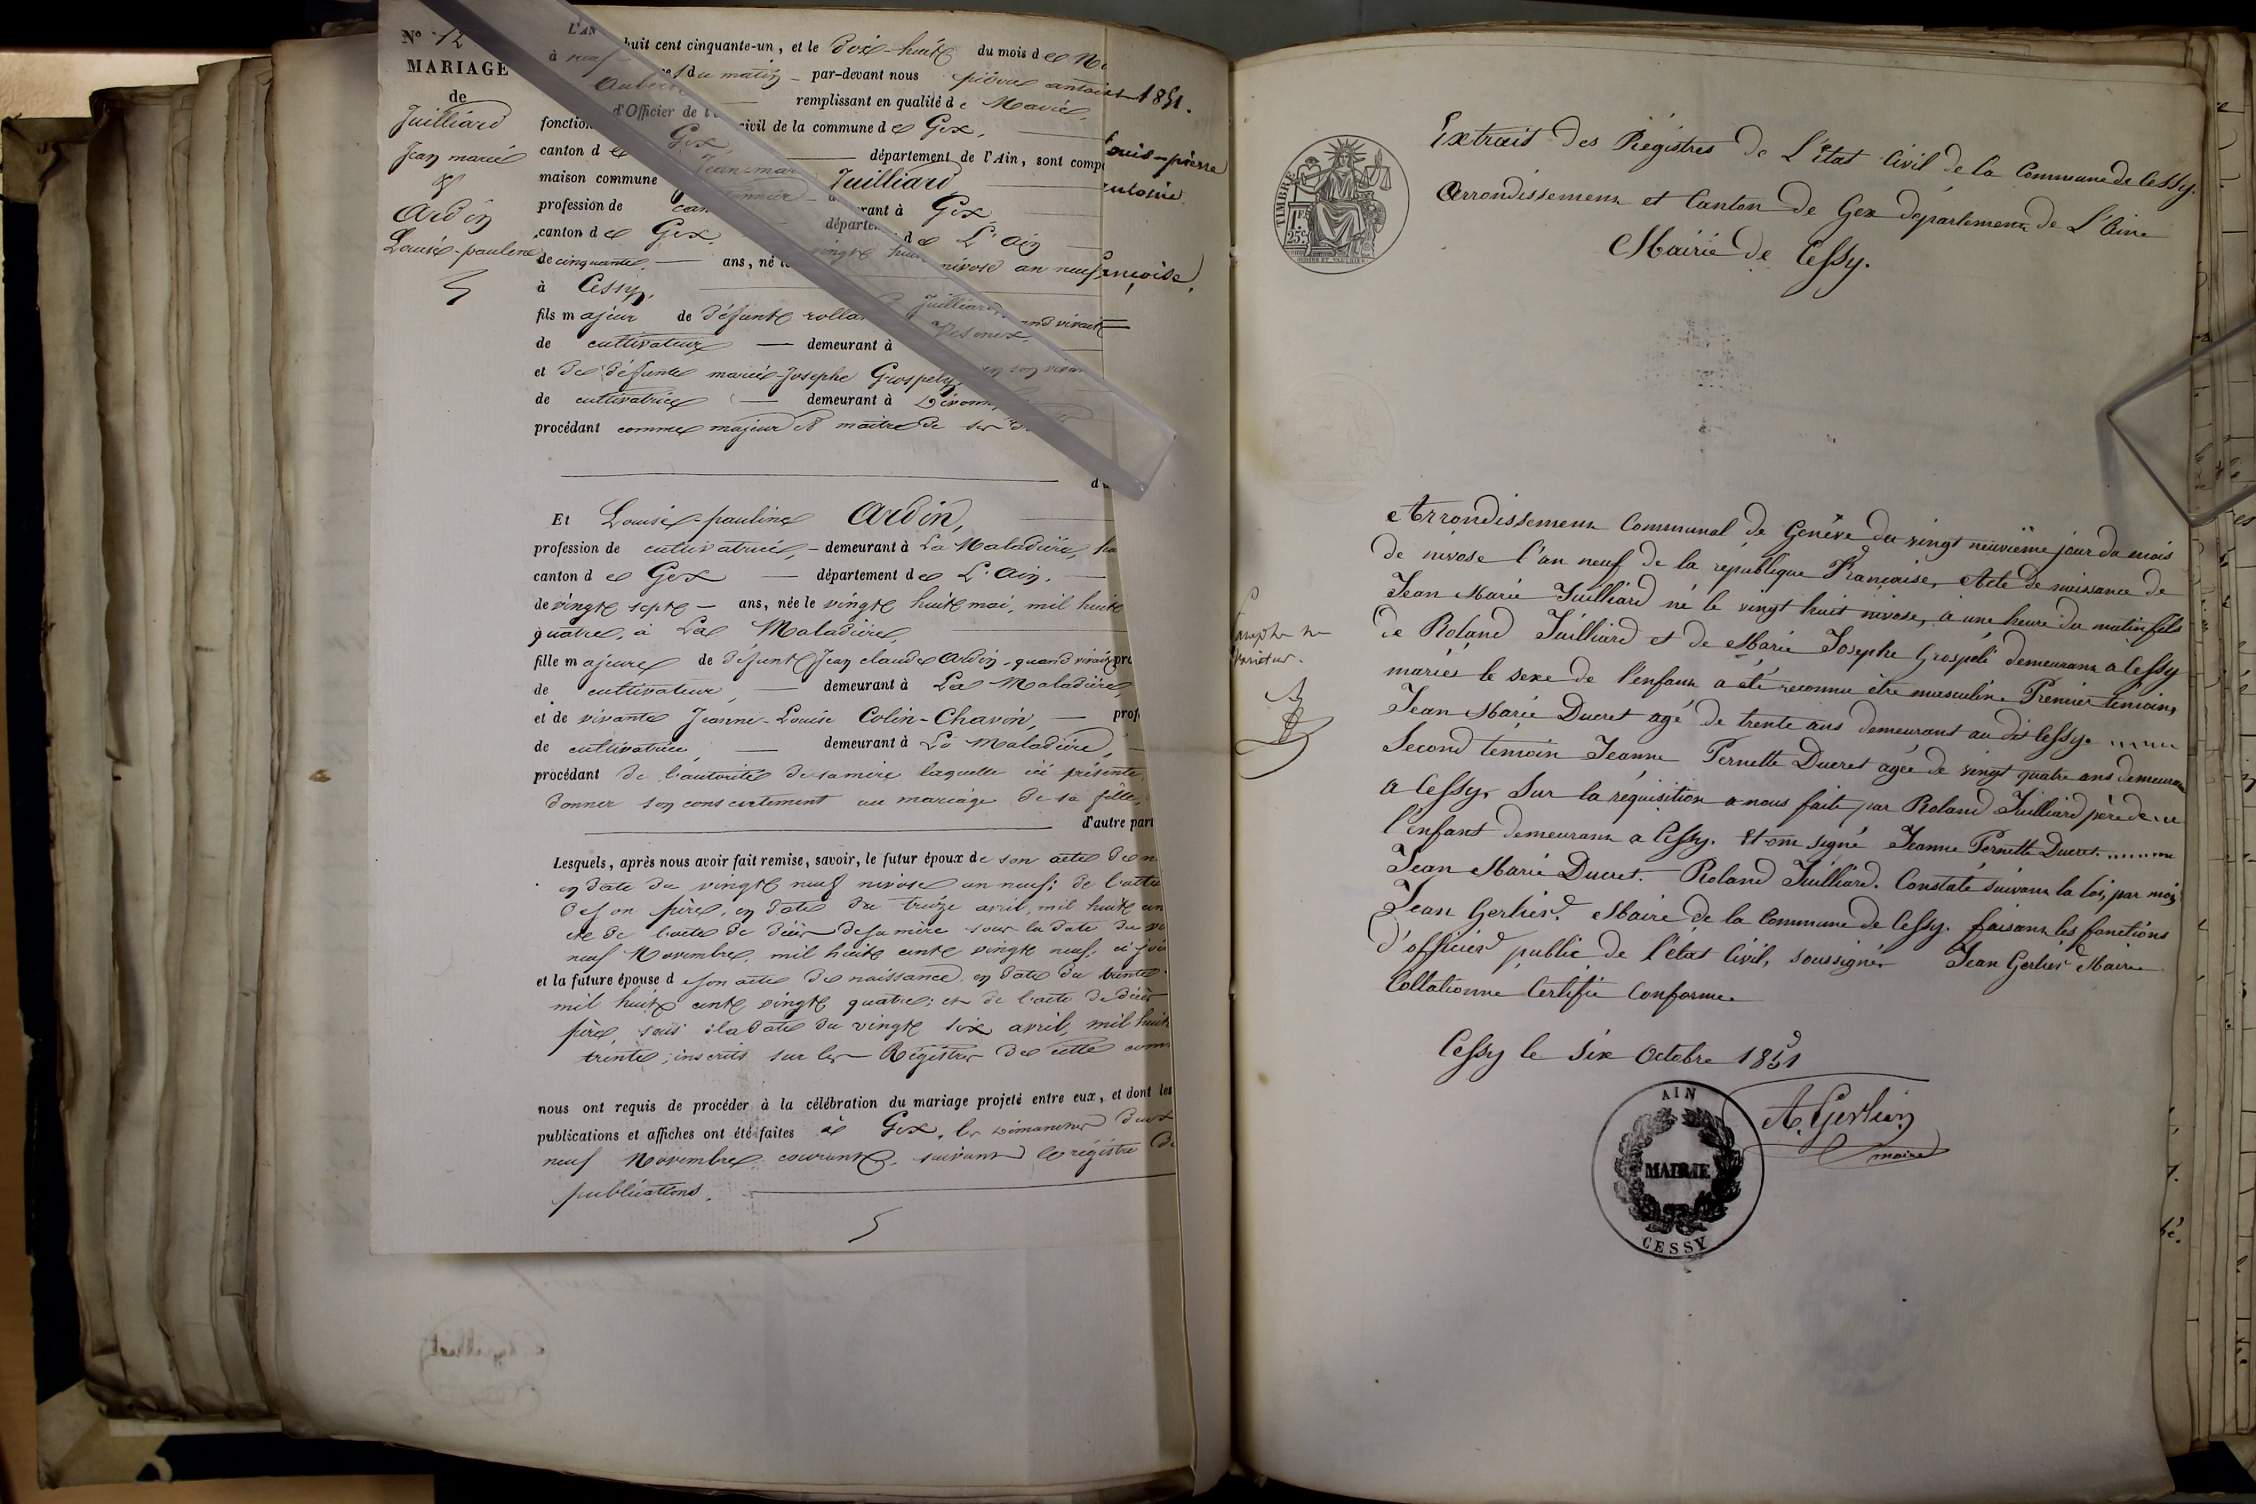 N° 12
MARIAGE
de
Juilliard
Jean marie
&
Ardin
Louise-pauline
L'AN huit cent cinquante-un, et le dix-huit du mois de
à neuf du matin par-devant nous pierre antoine
remplissant en qualité de Maire,
fonctions d'Officier de l' civil de la commune de Gex,
canton de Gex, département de l'Ain, sont comp
maison commune Jean-mar Juilliard
profession de à Gex
canton de Gex, départe de L'Ain
de cinquante ans, né le vingt huit nivose an neuf
à Cessy,
fils majeur de défunt rolla Juilliard, quand vivait
de cultivateur demeurant à
et de défunte marie-Josephe Grospely, en son vivan
de cultivatrice demeurant à Divonn
procédant comme majeur & maitre de ses d
Et Louise-pauline Ardin,
profession de cultivatrice, demeurant à La Maladière,
canton de Gex département de L'Ain.
de vingt sept ans, née le vingt huit mai, mil huit
quatre, à La Maladière,
fille majeure de défunt Jean claude Ardin, quand vivait pro
de cultivateur demeurant à La Maladière
et de vivante Jeanne-Louise Colin-Chavin, prof
de cultivatrice demeurant à La Maladière,
procédant de l'autorité de sa mère laquelle ici présente
donner son consentement au mariage de sa fille,
d'autre part
Lesquels, après nous avoir fait remise, savoir, le futur époux de son acte de n
en date du vingt neuf nivose an neuf; de l'acte
de son père, en date du treize avril, mil huit cen
et de l'acte de décès de sa mère sous la date du
neuf Novembre, mil huit cent vingt neuf, ci-join
et la future épouse de son acte de naissance en date du trente
mil huit cent vingt quatre; et de l'acte de décès
père, sous la date du vingt six avril, mil huit
trente; inscrits sur les Régistres de cette com
nous ont requis de procéder à la célébration du mariage projeté entre eux, et dont les
publications et affiches ont été faites à Gex, les dimanches deux
neuf Novembre courant, suivant le régistre de
publications.
1851.
Louis-pierre
antoine
ançoise,
TIMBRE
1 F.
25 C.
Extrait des Régistres de L'état Civil de la Commune de Cessy.
Arrondissement et Canton de Gex département de L'Ain
Mairie de Cessy.
Arrondissement Communal de Genève du vingt neuvième jour du mois
de nivose l'an neuf de la république Française, Acte de naissance de
Jean Marie Juilliard né le vingt huit nivose, à une heure du matin fils
de Roland Juilliard et de Marie Josephe Grospeli demeurant a Cessy
mariés le sexe de l'enfant a été reconnu être masculin. Premier témoin,
Jean Marie Ducret agé de trente ans demeurant au dit Cessy.
Second témoin Jeanne Pernette Ducret agée de vingt quatre ans demeurant
a Cessy, Sur la réquisition a nous faite par Roland Juilliard père de
l'enfant demeurant a Cessy. Et ont signé Jeanne Pernette Ducret.
Jean Marie Ducret. Roland Juilliard. Constaté suivant la loi, par moi
Jean Gerlier. Maire de la Commune de Cessy. faisant les fonctions
d'officier public de l'état Civil, soussigné Jean Gerlier Maire
Collationné Certifié Conforme
Cessy le Six Octobre 1851
A. Gerlier
maire
AIN
MAIRIE
CESSY